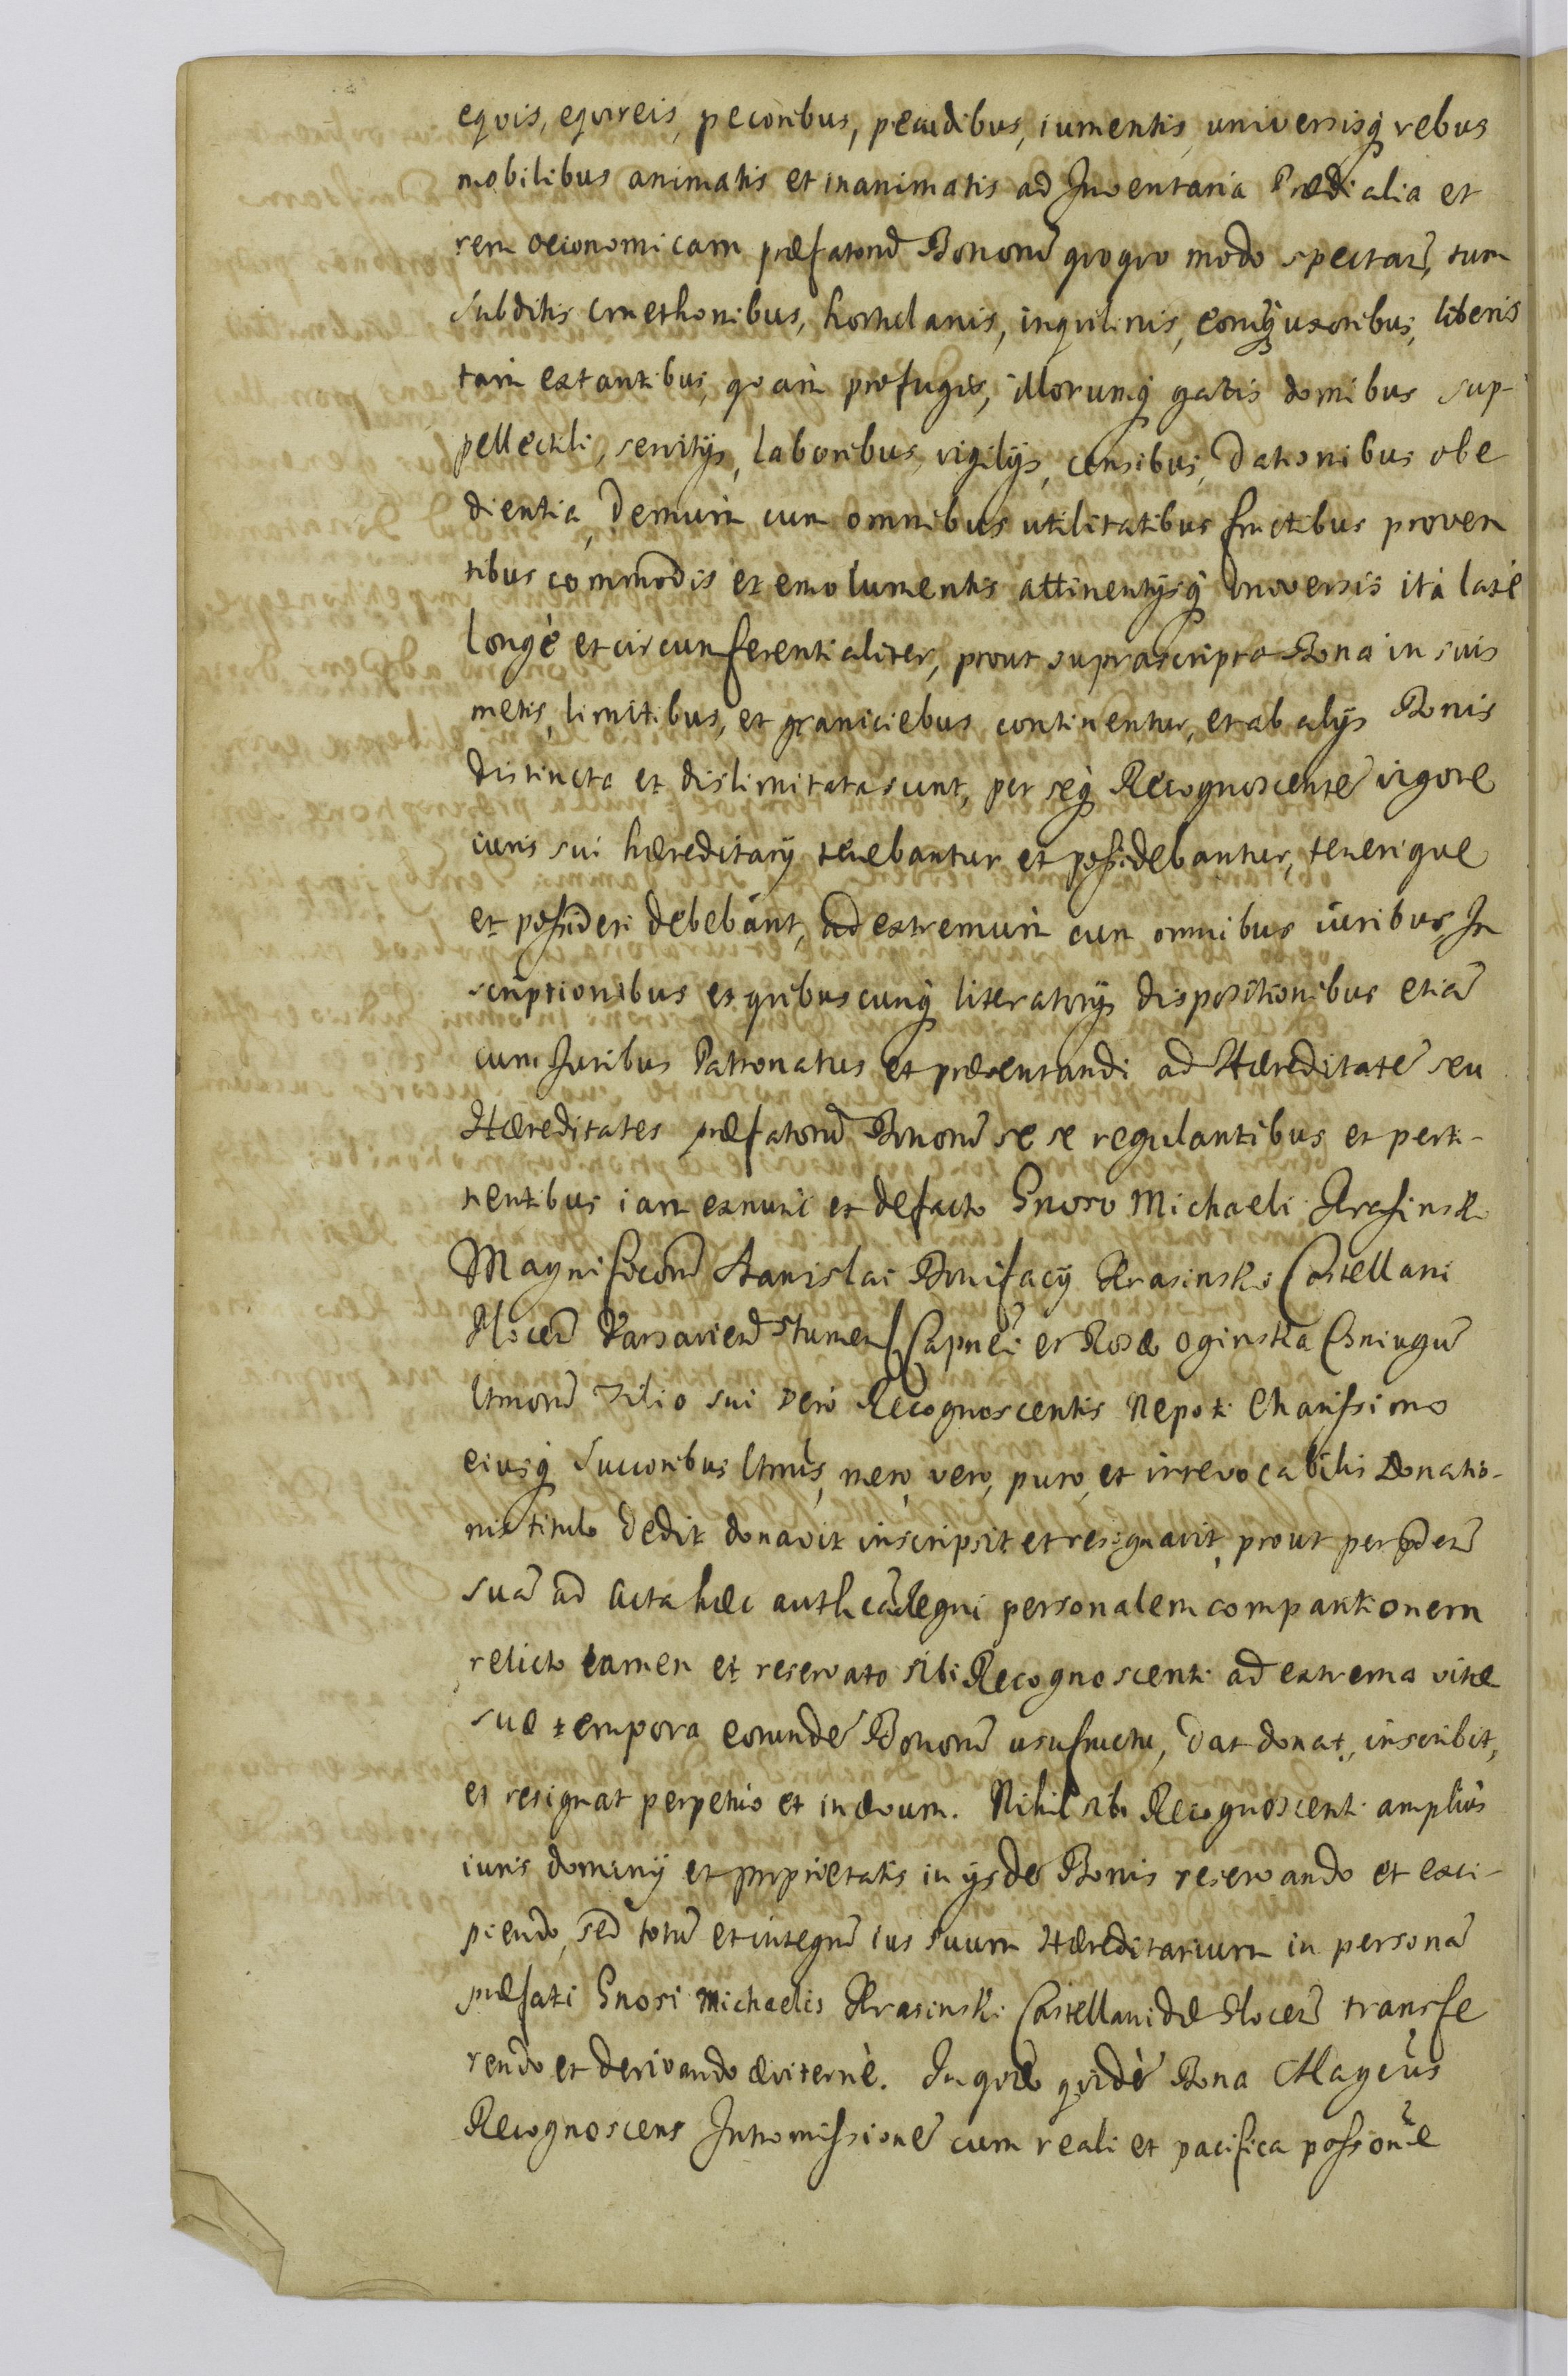 equis, equireis, pecoribus, pecudibus, iumentis, universisq́ rebus
mobilibus animatis et inanimatis ad Inventaria Prædialia et
rem œconomicam præfatorū Bonorū quoquo modo spectan̄, tum
Subditis Cmethonibus, hortulanis, inquilinis, eorūq́ uxoribus, liberis
tam extantibus, quam profugis, illorumq́ gazis domibus sup-
pellectili, servitÿs, laboribus, vigilÿs, censibus, dationibus obe
dientia, Demum cum omnibus utilitatibus fructibus proven
tibus commodis et emolumentis attinentÿsq́ universis ità latè
longè et circumferentialiter, prout suprascripta Bona in suis
metis, limitibus, et graniciebus continentur, et ab alÿs Bonis
distincta et dislimitata sunt, per seq́ Recognoscentē vigore
iuris sui hæreditarÿ tenebantur et possidebantur, tenerique
et possideri debebant, ad extremum cum omnibus iuribus, In
scriptionibus et quibuscunq́ literatorÿs dispositionibus etiā
cum Juribus Patronatus et præsentandi ad Hæreditatē seu
Hæreditates præfatorū Bonorū se se regulantibus et perti-
nentibus iam exnunc et defacto Gnoso Michaeli Krasinski
Magnificorū Stanislai Bonifacÿ Krasinski Castellani
Plocen̄ Varsavien̄ Stumen̄ Capnei et Rosæ Oginska Coniugū
ltmorū Filio sui vero Recognoscentis Nepoti Charissimo
eiusq́ Succoribus ltmis, mero, vero, puro, et irrevocabilis Donatio-
nis titulo dedit donavit inscripsit et resignavit, prout per pñtem
suā ad Acta hæc authca Regni personalem comparitionem
relicto tamen et reservato sibi Recognoscenti ad extrema vitæ
suæ tempora eorundē Bonorū usufructu, dat donat, inscribit,
et resignat perpetuo et in ævum. Nihil sibi Recognoscenti amplius
iuris dominÿ et proprietatis in ÿsdē Bonis reservando et exci-
piendo, sed totū et integrū ius suum Hæreditarium in personā
præfati Gnosi Michaelis Krasinski Castellanidæ Plocen̄ transfe
rendo et derivando æviternè. In quæ quidē Bona Magcus
Recognoscens Intromissionē cum reali et pacifica possone